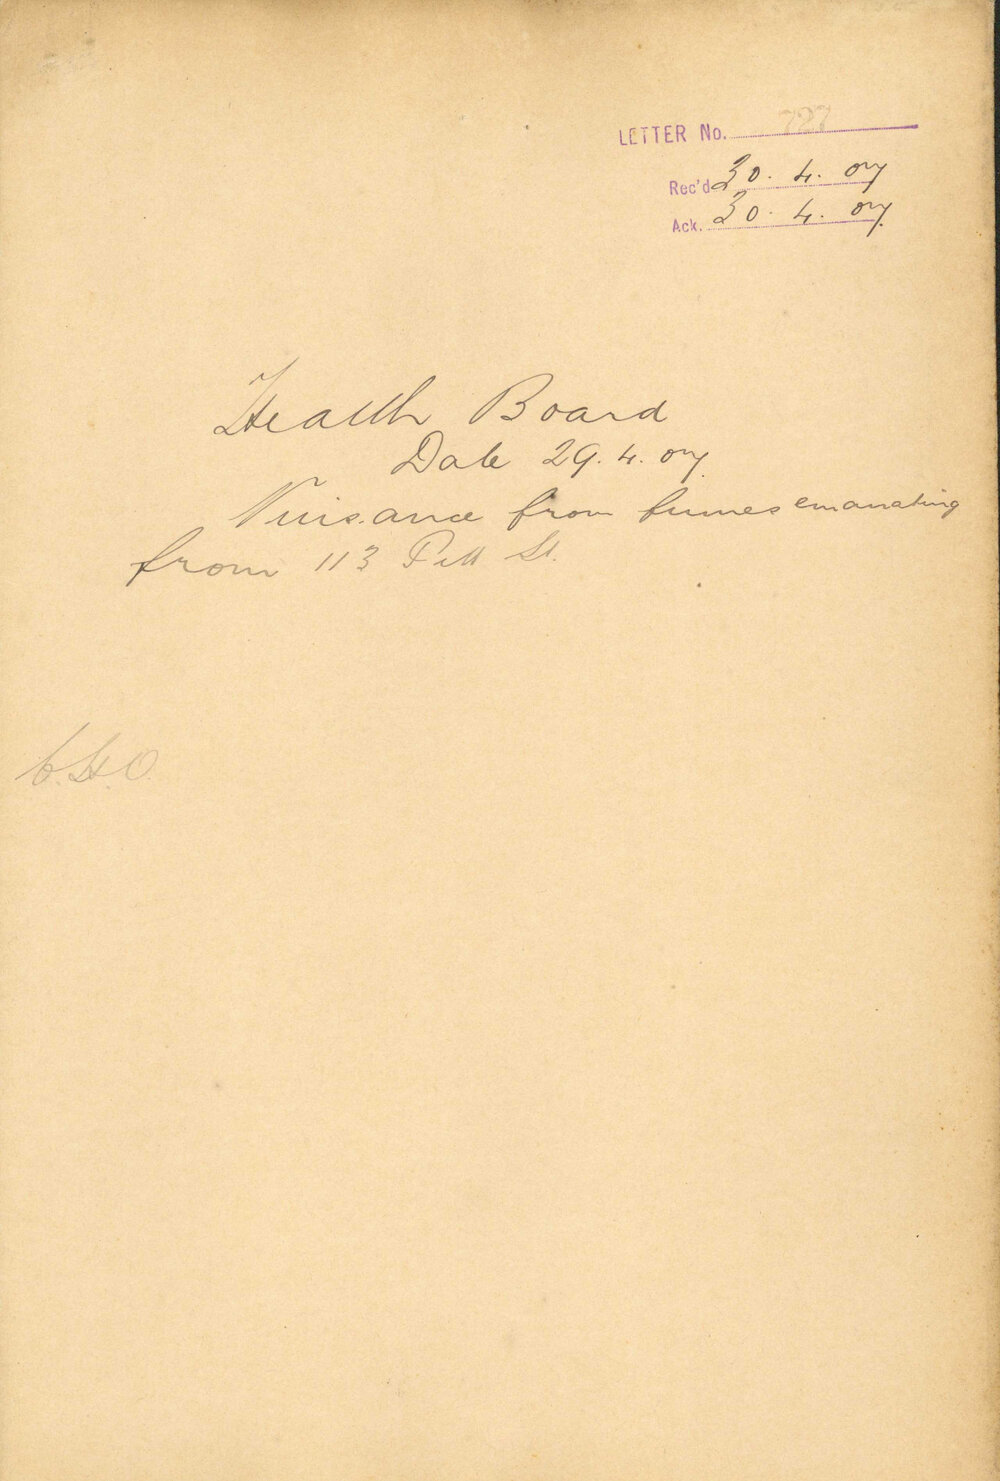 LETTER No. 727
Rec'd 30. 4. 07
Ack. 30. 4. 07.
Health Board
Date 29. 4. 07.
Nuisance from fumes emanating
from 113 Pitt St.
C.H.O.